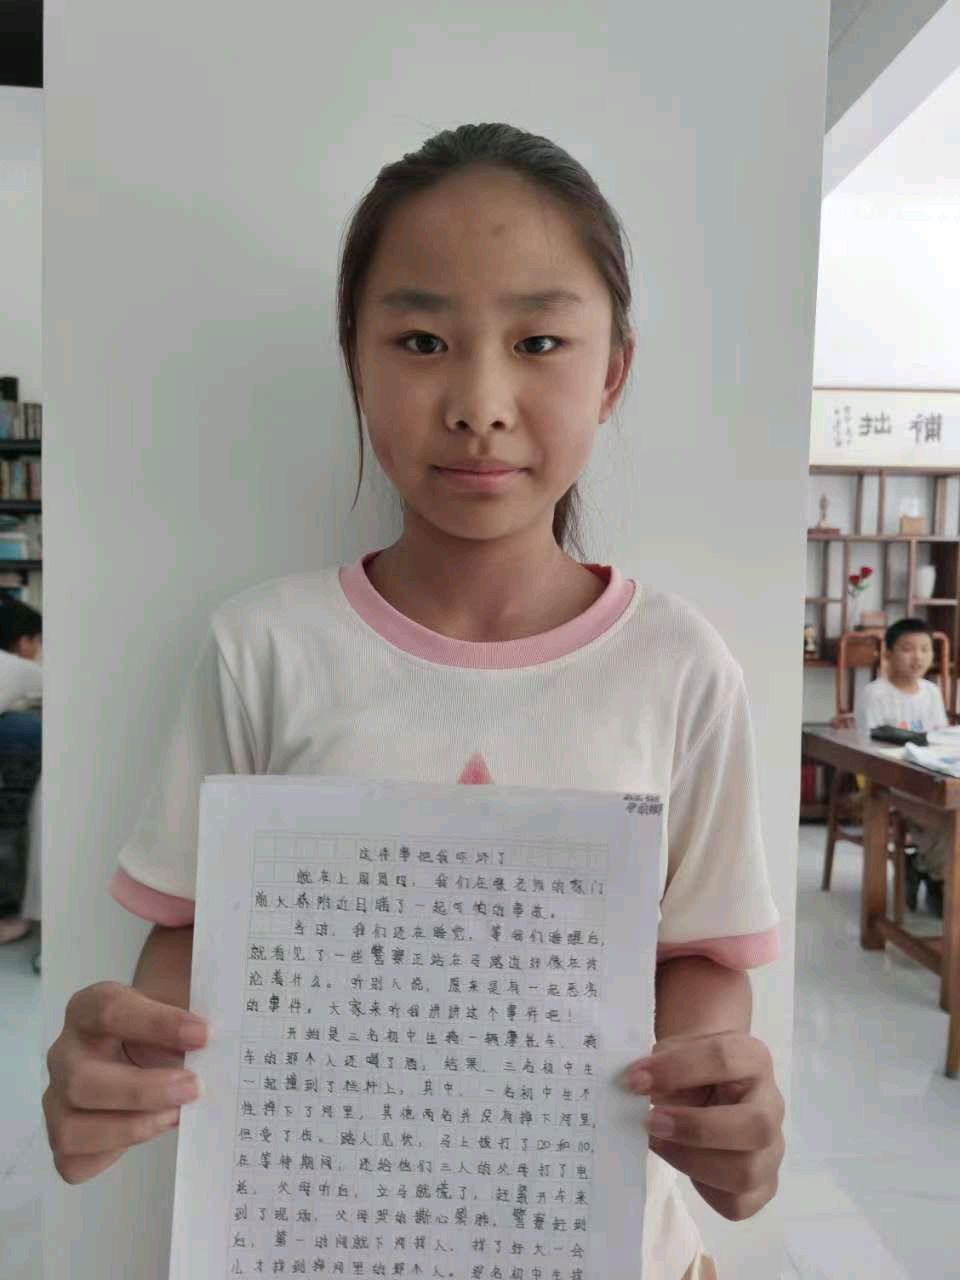 补拙
这件事把我吓坏了
就在上周周四，我们在张老师的家门
前大桥附近目睹了一起可怕的事故。
当时，我们还在睡觉，等我们睡醒后，
就看见了一些警察正站在马路边好像在谈
论着什么。听别人说，原来是有一起恶劣
的事件。大家来听我讲讲这个事件吧！
开始是三名初中生骑一辆摩托车，骑
车的那个人还喝了酒，结果，三名初中生
一起撞到了栏杆上，其中，一名初中生不
性掉下了河里，其他两名并没有掉下河里，
但受了伤。路人见状，马上拨打了120和110，
在等待期间，还给他们三人的父母打了电
话，父母听后，立马就慌了，赶紧开车来
到了现场，父母哭的撕心裂肺，警察赶到
后，第一时间就下河找人，找了好大一会
儿才找到掉河里的那个人。